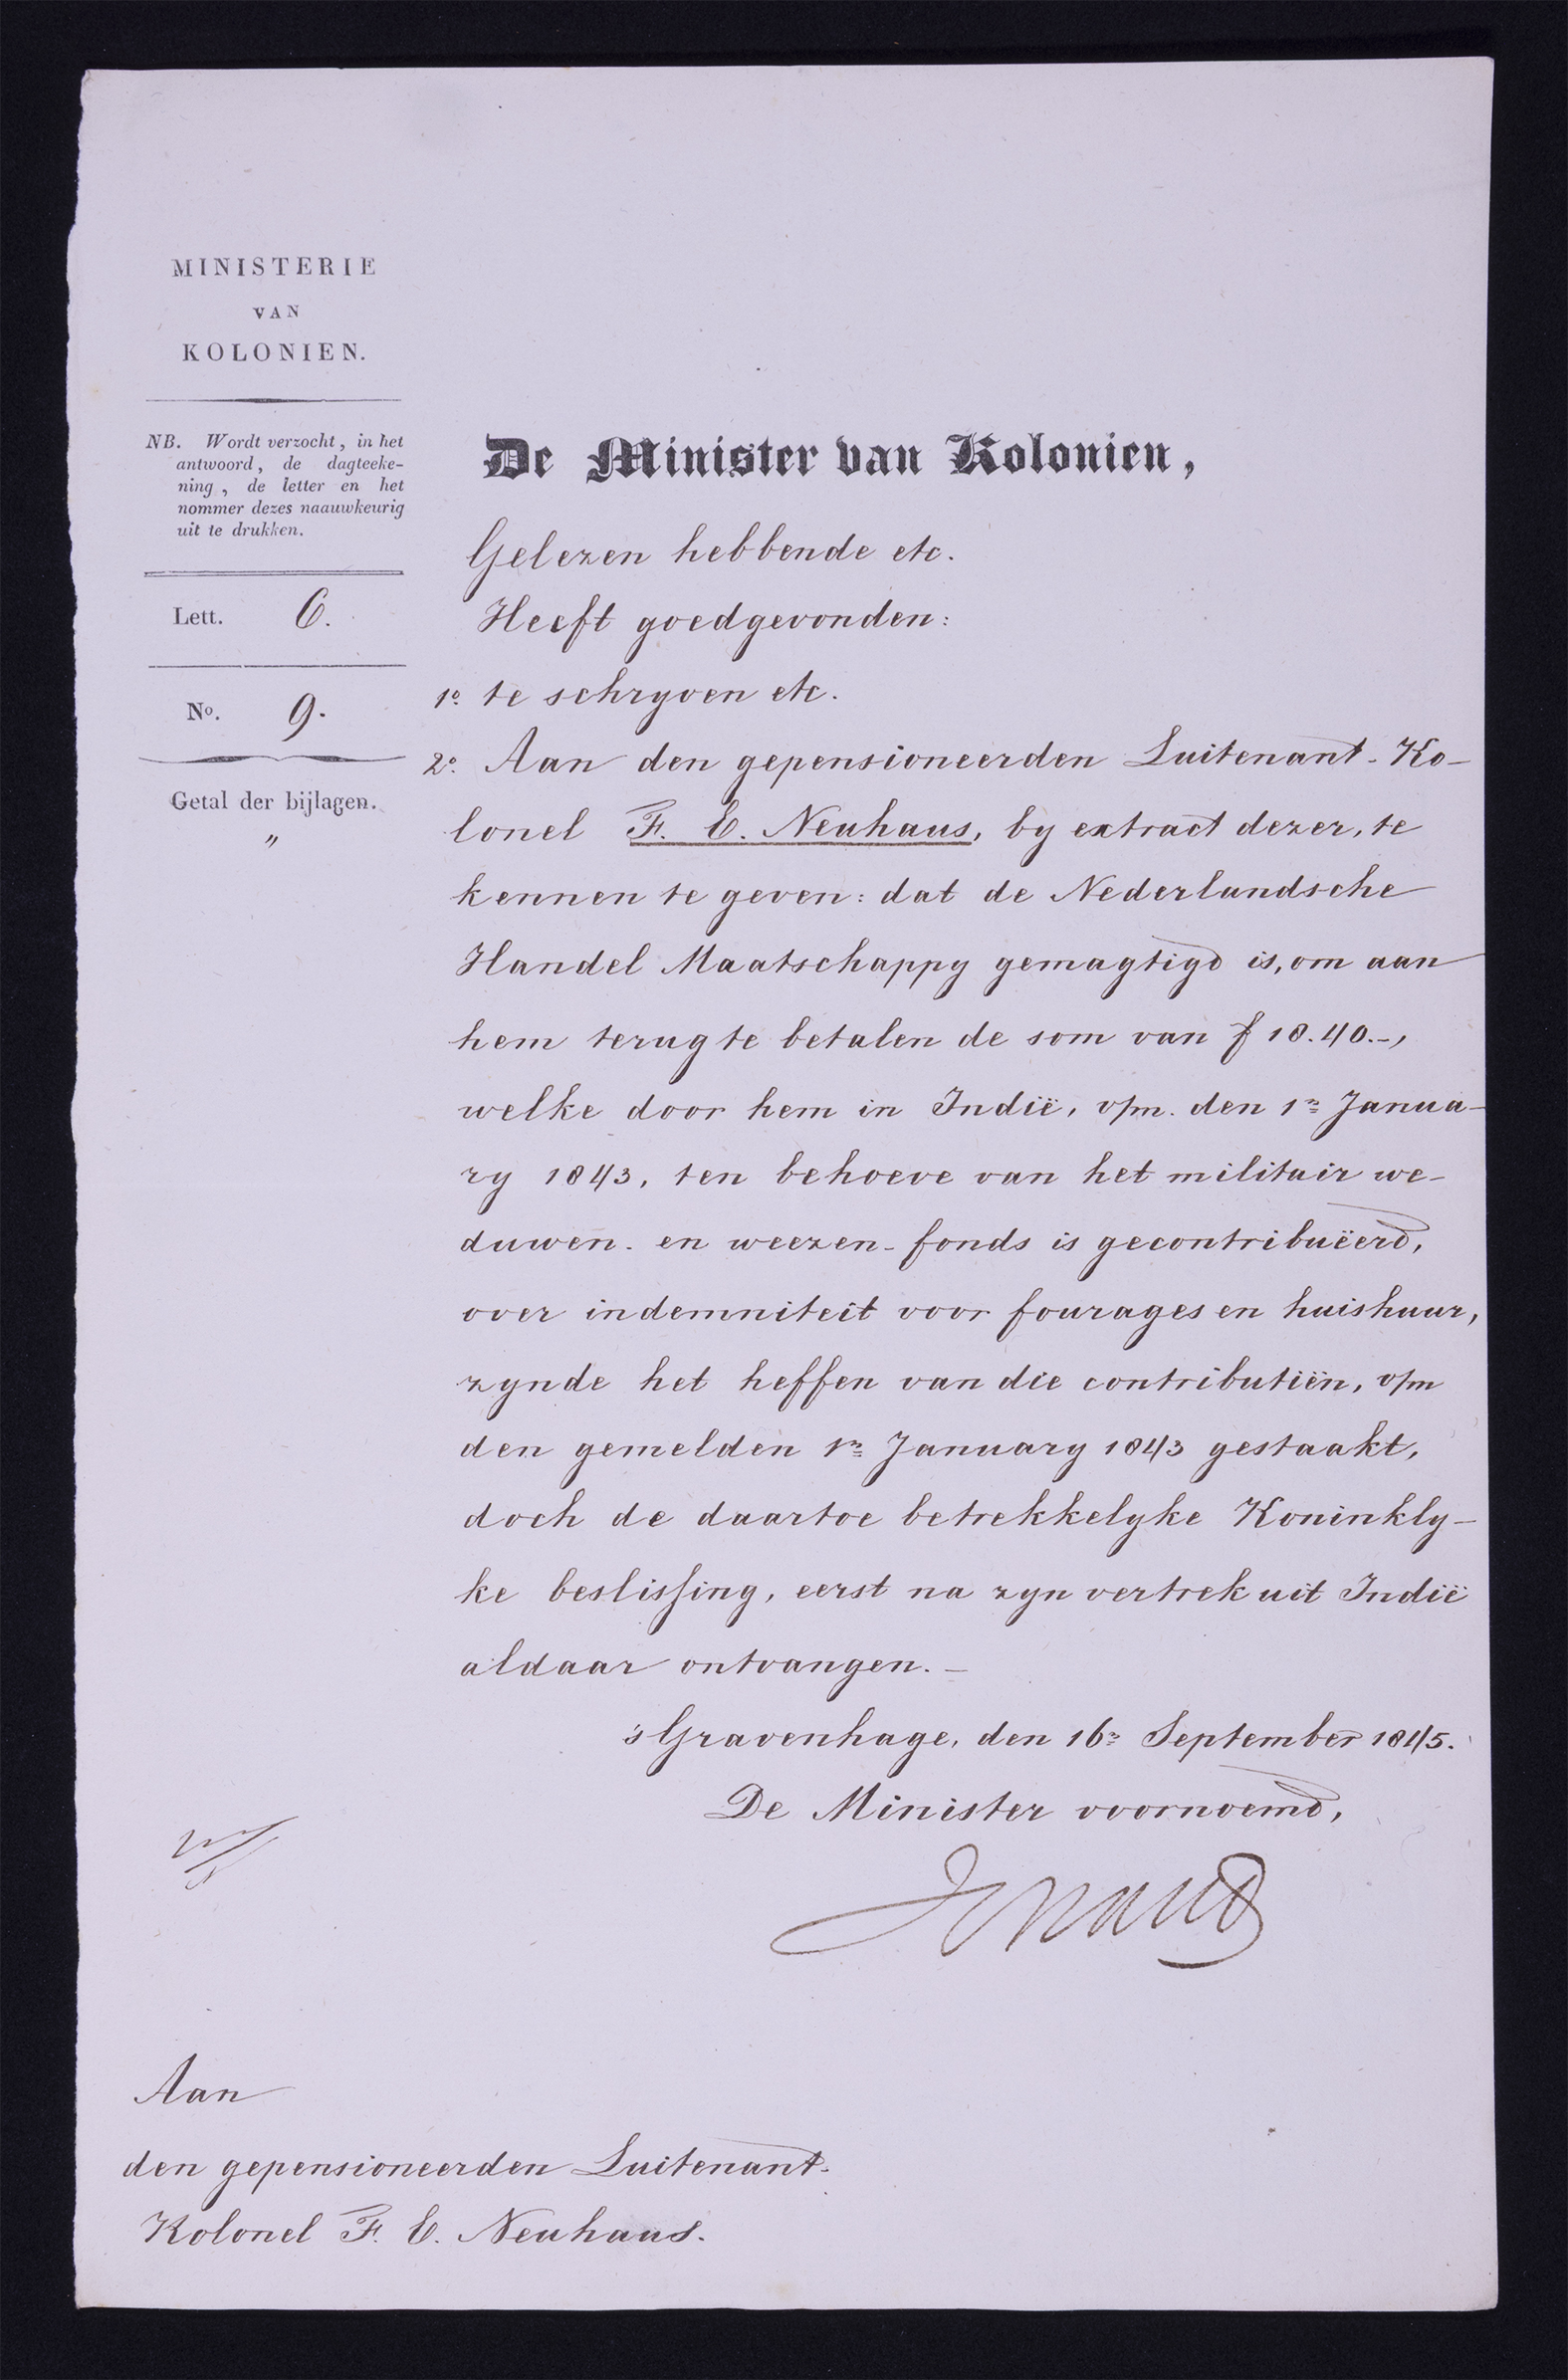 MINISTERIE
VAN
KOLONIEN.
NB. Wordt verzocht, in het
antwoord, de dagteeke-
ning, de letter en het
nommer dezes naauwkeurig
uit te drukken.
Lett. C.
No. 9.
Getal der bijlagen.
"
De Minister van Kolonien,
Gelezen hebbende etc.
Heeft goedgevonden:
1o. te schryven etc.
2o. Aan den gepensioneerden Luitenant-Ko-
lonel F. E. Neuhaus, by extract dezer, te
kennen te geven: dat de Nederlandsche
Handel Maatschappy gemagtigd is, om aan
hem terug te betalen de som van f 18.40.-,
welke door hem in Indië, v/m. den 1n Janua-
ry 1843, ten behoeve van het militair we-
duwen- en weezen-fonds is gecontribuëerd,
over indemniteit voor fourages en huishuur,
zynde het heffen van die contributiën, v/m
den gemelden 1n January 1843 gestaakt,
doch de daartoe betrekkelyke Koninkly-
ke beslissing, eerst na zyn vertrek uit Indië
aldaar ontvangen.-
's Gravenhage, den 16n September 1845.
De Minister voornoemd,
Aan
den gepensioneerden Luitenant-
Kolonel F. E. Neuhaus.